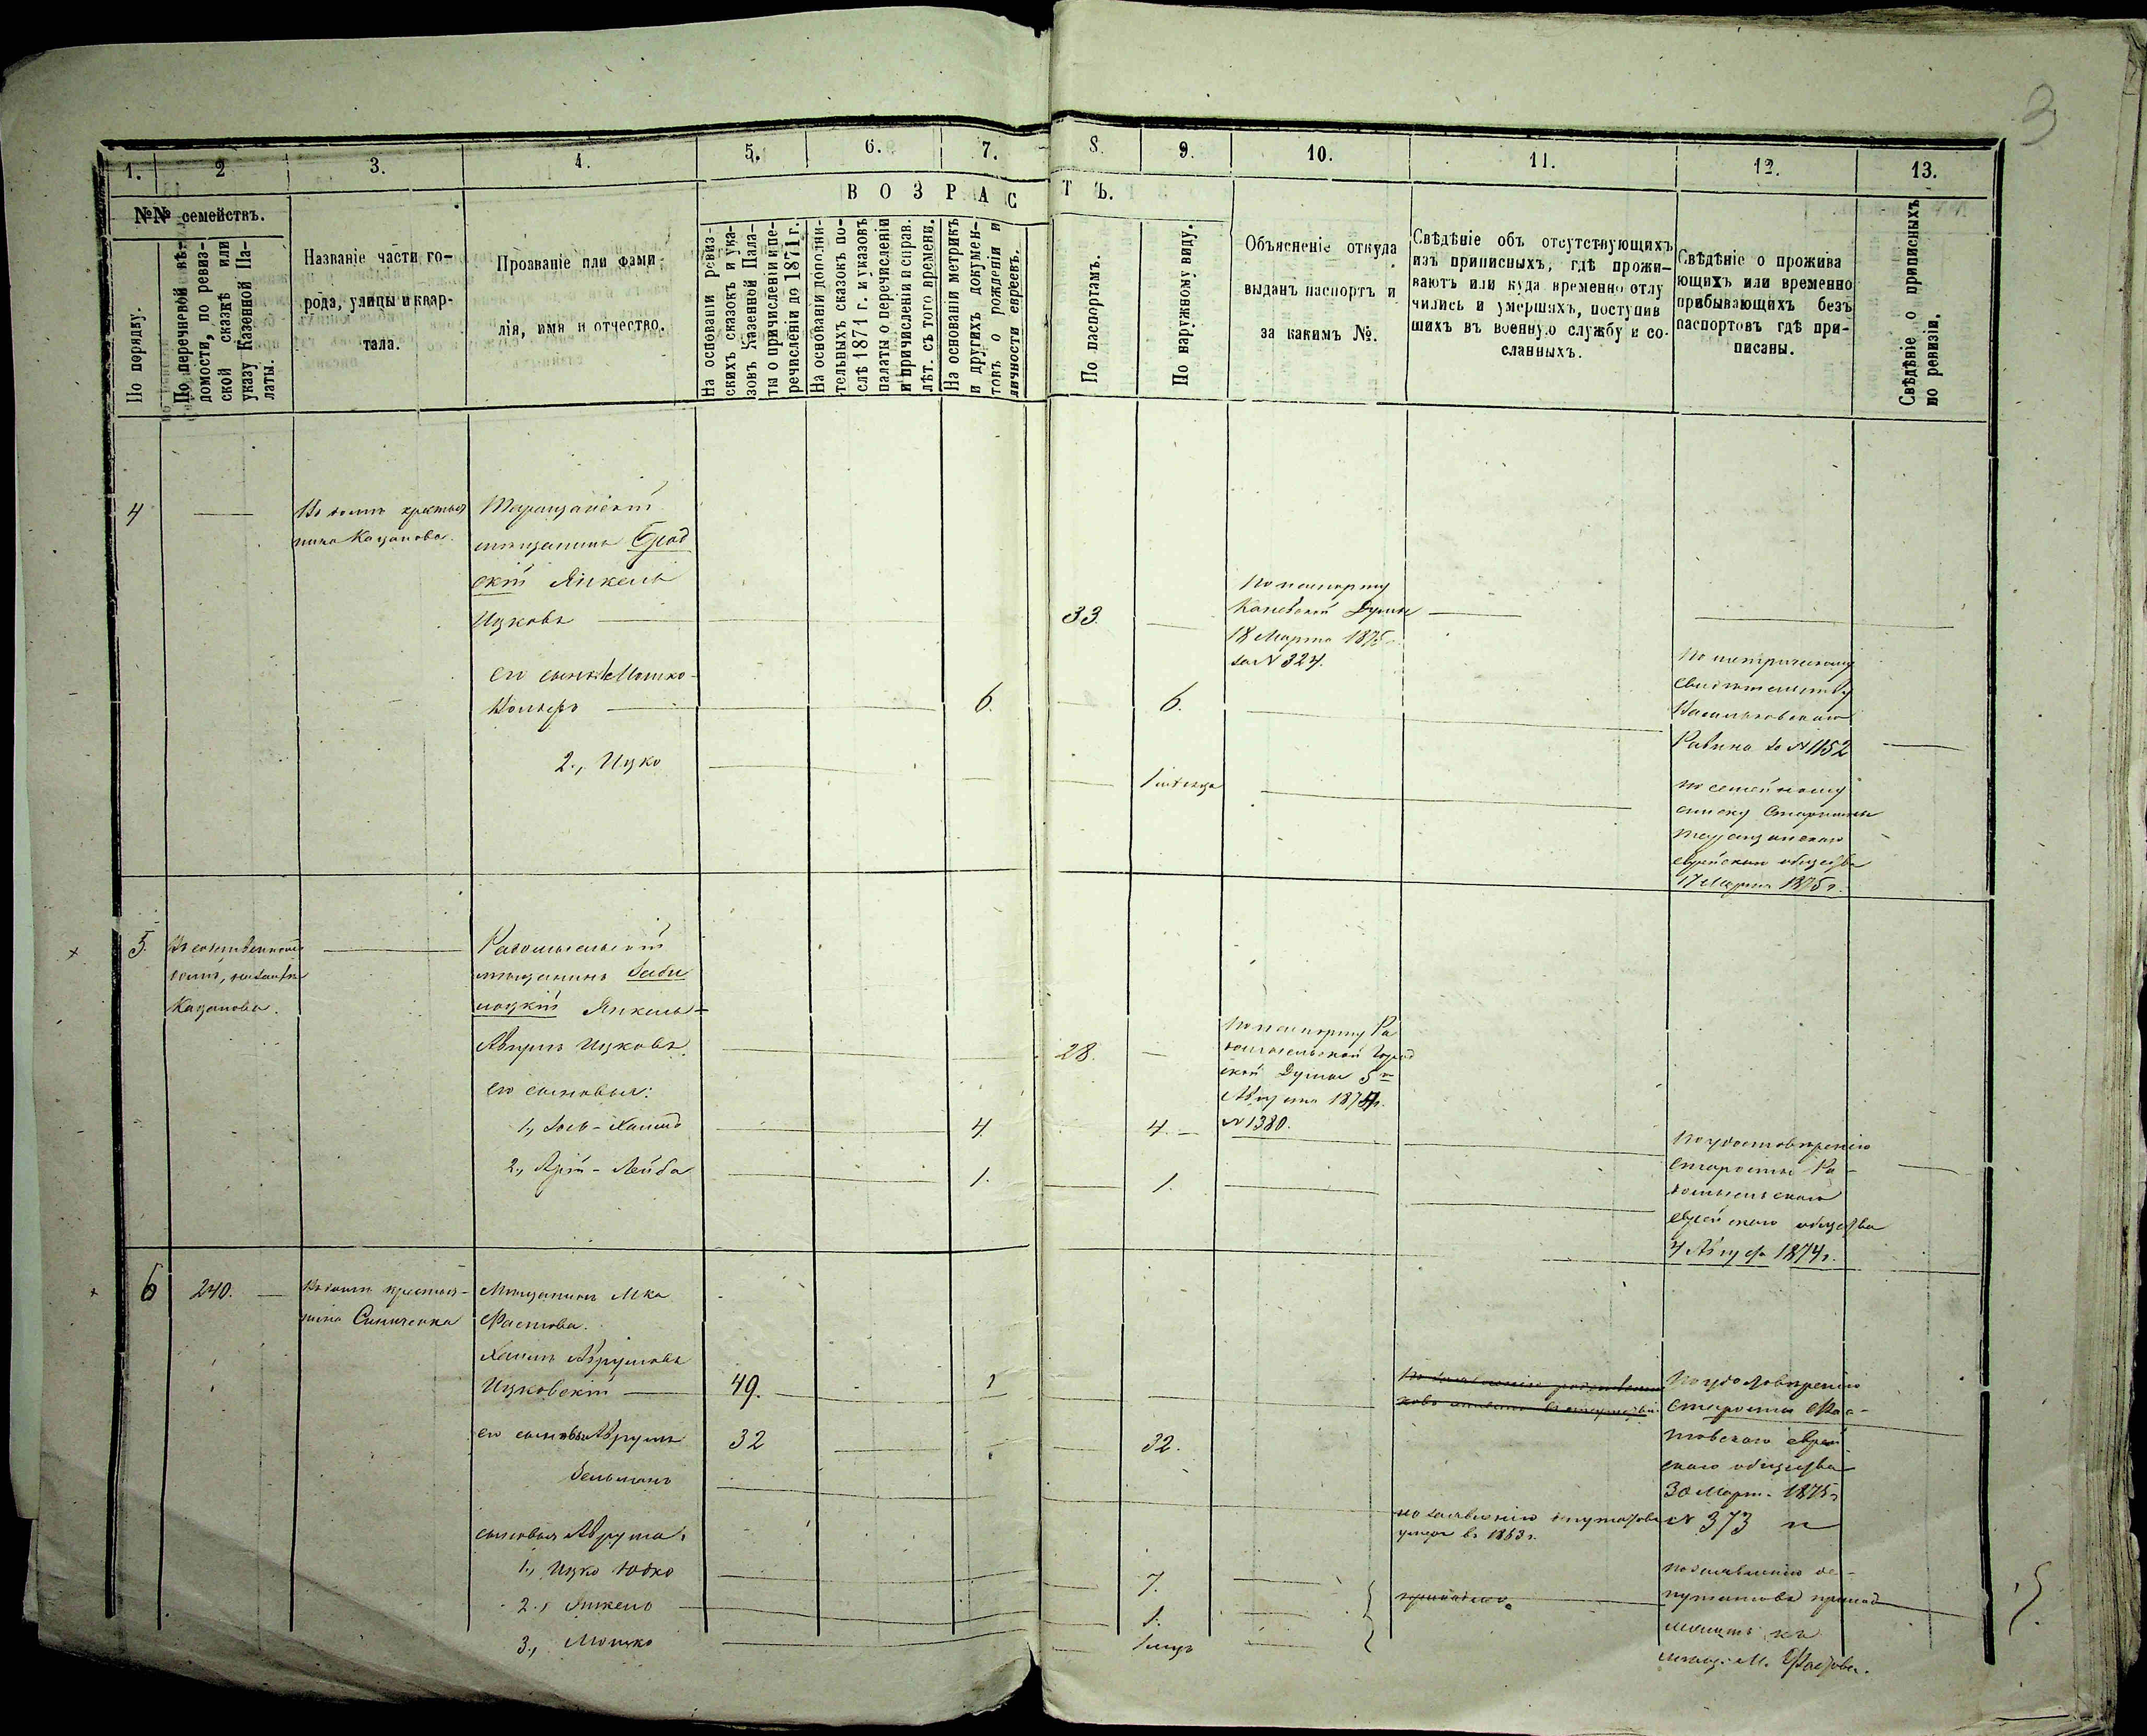 3
1.
2
3.
4.
5.
6.
7.
8.
9.
10.
11.
12.
13.
№№ семействъ.
ВОЗРАСТЪ.
По порядку.
По перечневой вѣ-
домости, по ревиз-
ской сказкѣ или
указу Казенной Па-
латы.
Названіе части го-
рода, улицы и квар-
тала.
Прозваніе или фами-
лія, имя и отчество.
На основаніи ревиз-
скихъ сказокъ и ука-
зовъ Казенной Пала-
ты о причисленіи и пе-
речисленіи до 1871 г.
На основаніи дополни-
тельныхъ сказокъ по-
слѣ 1871 г. и указовъ
палаты о перечисленіи
и причисленіи и справ.
лѣт. съ того времени.
На основаніи метрикъ
и другихъ докумен-
товъ о рожденіи и
личности евреевъ.
По паспортамъ.
По наружному виду.
Объясненіе откуда
выданъ паспортъ и
за какимъ №.
Свѣдѣніе объ отсутствующихъ
изъ приписныхъ, гдѣ прожи-
ваютъ или куда временно отлу
чились и умершихъ, поступив
шихъ въ военную службу и со-
сланныхъ.
Свѣдѣніе о прожива
ющихъ или временно
прибывающихъ безъ
паспортовъ гдѣ при-
писаны.
Свѣдѣніе о приписныхъ
по ревизіи.
4
Въ домѣ крестья
нина Казанова.
Таращанскій
мѣщанинъ Брод
скій Янкель
Ицковъ
33
По паспорту
Каневской Думы
18 Марта 1875
за N 324.
его сынъ Мошко-
Вольфъ
6.
6.
По метрическому
свидѣтельству
Васильковскаго
Равина за N 1152
2., Ицко
1 мѣсяца
по семейному
списку Старосты
Таращанскаго
еврейскаго общества
17 Марта 1875 г.
5.
Въ собственномъ
домѣ,
Казанова.
Радомысльскій
мѣщанинъ Заби
лоцкій Янкель-
Аврумъ Ицковъ.
28.
По паспорту Ра
домысльской Город
ской Думы 5го
Августа 1874г.
N 1380.
его сыновья:
1., Хаимъ
4.
4.
2., Арій-Лейба
1.
1.
По удостовѣренію
старосты Ра-
домысльскаго
еврейскаго общества
4 Августа 1874 г.
6
240.
Въ домѣ крестья-
нина Синиченка
Мѣщанинъ М-ка
Фастова.
Хаимъ Аврумовъ
Ицковскій
49.
его сыновья Аврумъ
32
32.
Зельманъ
По удостовѣренію
старосты Фас-
товскаго еврей
скаго общества
30 Март. 1875г
N 373 и
по заявленію депутатовъ
умеръ въ 1863 г.
сыновья Аврума:
1., Ицко Юдко
7.
2., Янкель
1.
3., Мошко
1 мѣс
по заявленію де-
путатовъ принад
лежитъ къ
мѣщ. М. Фастова.